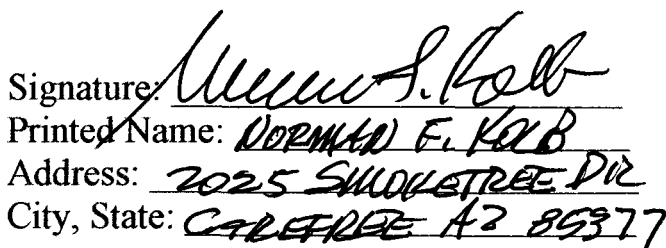 Signature: Norman F. Kolb
Printed Name: NORMAN F. KOLB
Address: 2025 SMOKETREE DR
City, State: CAREFREE AZ 85377